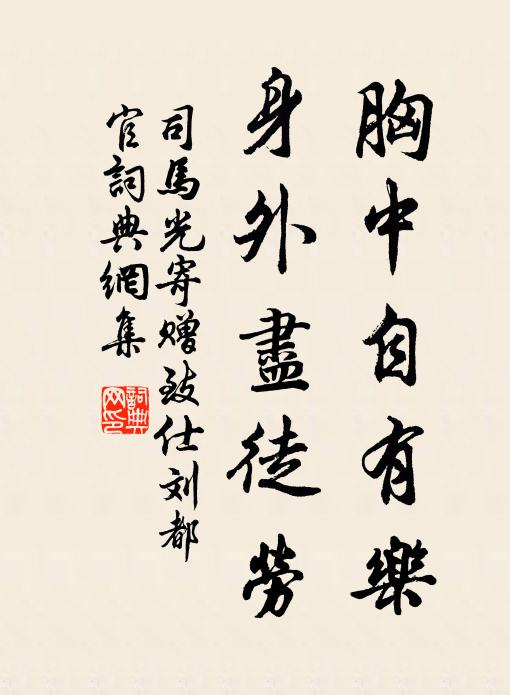 胸中自有樂
身外盡徒勞
司馬光寄贈致仕刘都
官詞典網集
詞典
网印